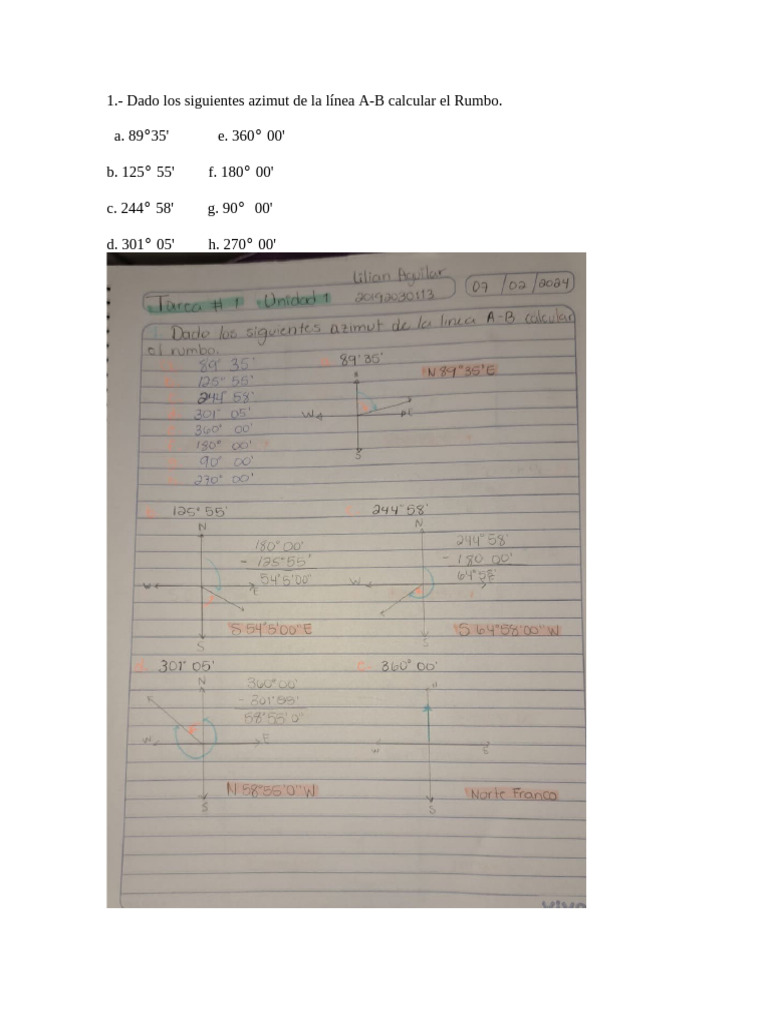 1.- Dado los siguientes azimut de la línea A-B calcular el Rumbo.
a. 89°35' e. 360° 00'
b. 125° 55' f. 180° 00'
c. 244° 58' g. 90° 00'
d. 301° 05' h. 270° 00'
Lilian Aguilar
Tarea #1 Unidad 1 20192030113 07/02/2024
1. Dado los siguientes azimut de la linea A-B calcular
el rumbo.
89° 35' 89°35' N 89°35'E
125° 55'
244° 58'
301° 05' W E
360° 00'
180° 00'
90° 00' S
270° 00'
125° 55' 244° 58'
N N
180° 00' 244° 58'
- 125°55' - 180 00'
54°5'00 64°58'
W E W
S 54°5'00"E S 64°58'00"W
S S
301° 05' e. 360° 00'
N 360°00' N
- 301°55'
58°55'0"
W E W E
N 58°55'0"W Norte Franco
S S
vivo